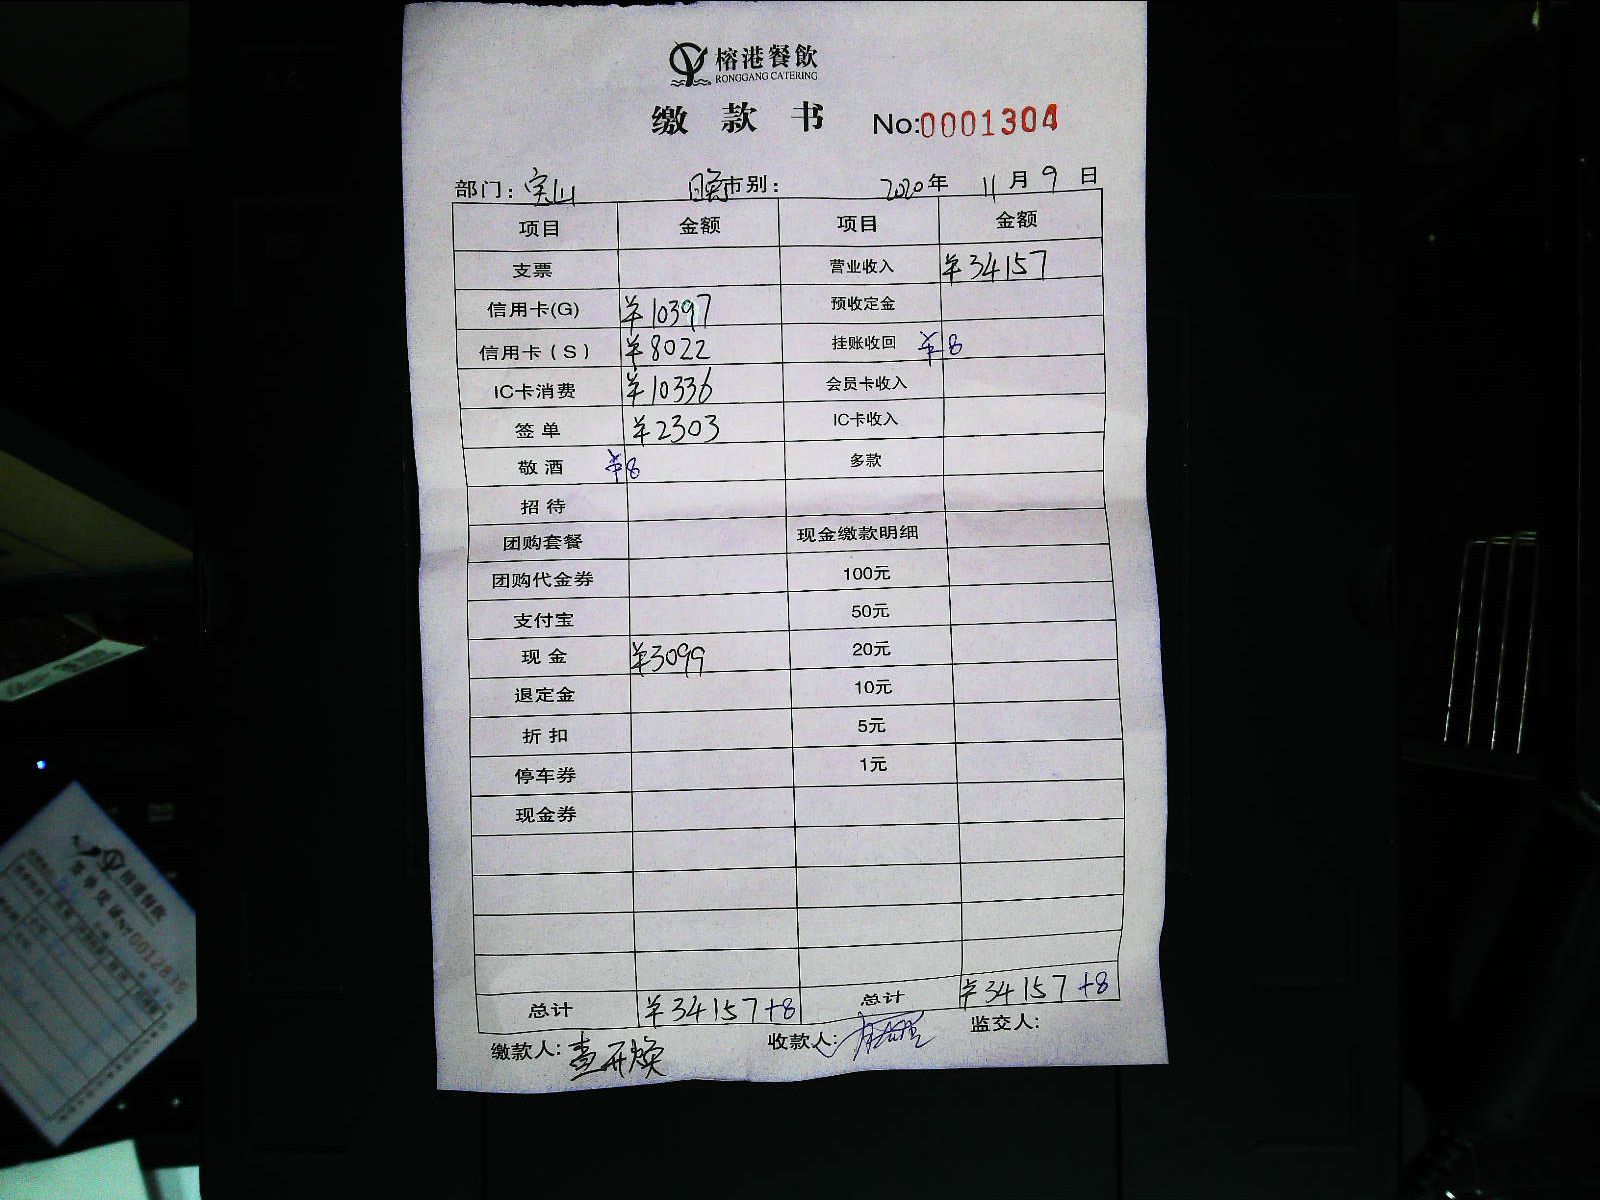 榕港餐飲
RONGGANG CATERING
缴款书 No:0001304
部门：宝山 晚市别： 2020年 11月 9日
项目 金额 项目 金额
支票 营业收入 ¥34157
信用卡(G) ¥10397 预收定金
信用卡（S） ¥8022 挂账收回 ¥8
IC卡消费 ¥10336 会员卡收入
签单 ¥2303 IC卡收入
敬酒 ¥8 多款
招待
团购套餐 现金缴款明细
团购代金券 100元
支付宝 50元
现金 ¥3099 20元
退定金 10元
折扣 5元
停车券 1元
现金券
总计 ¥34157+8 总计 ¥34157+8
缴款人：查开焕 收款人： 监交人：
榕港餐飲